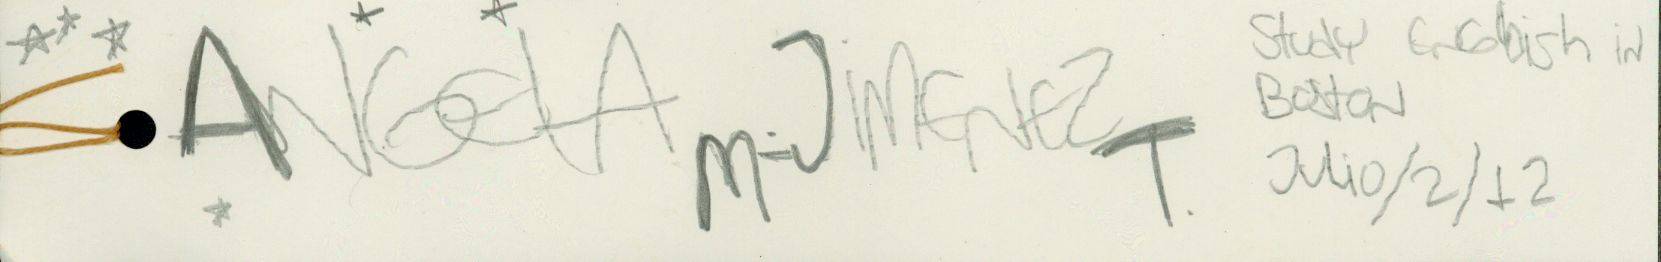 ANGELA M-JIMENEZ T.
Study English in
Boston
Julio/2/12